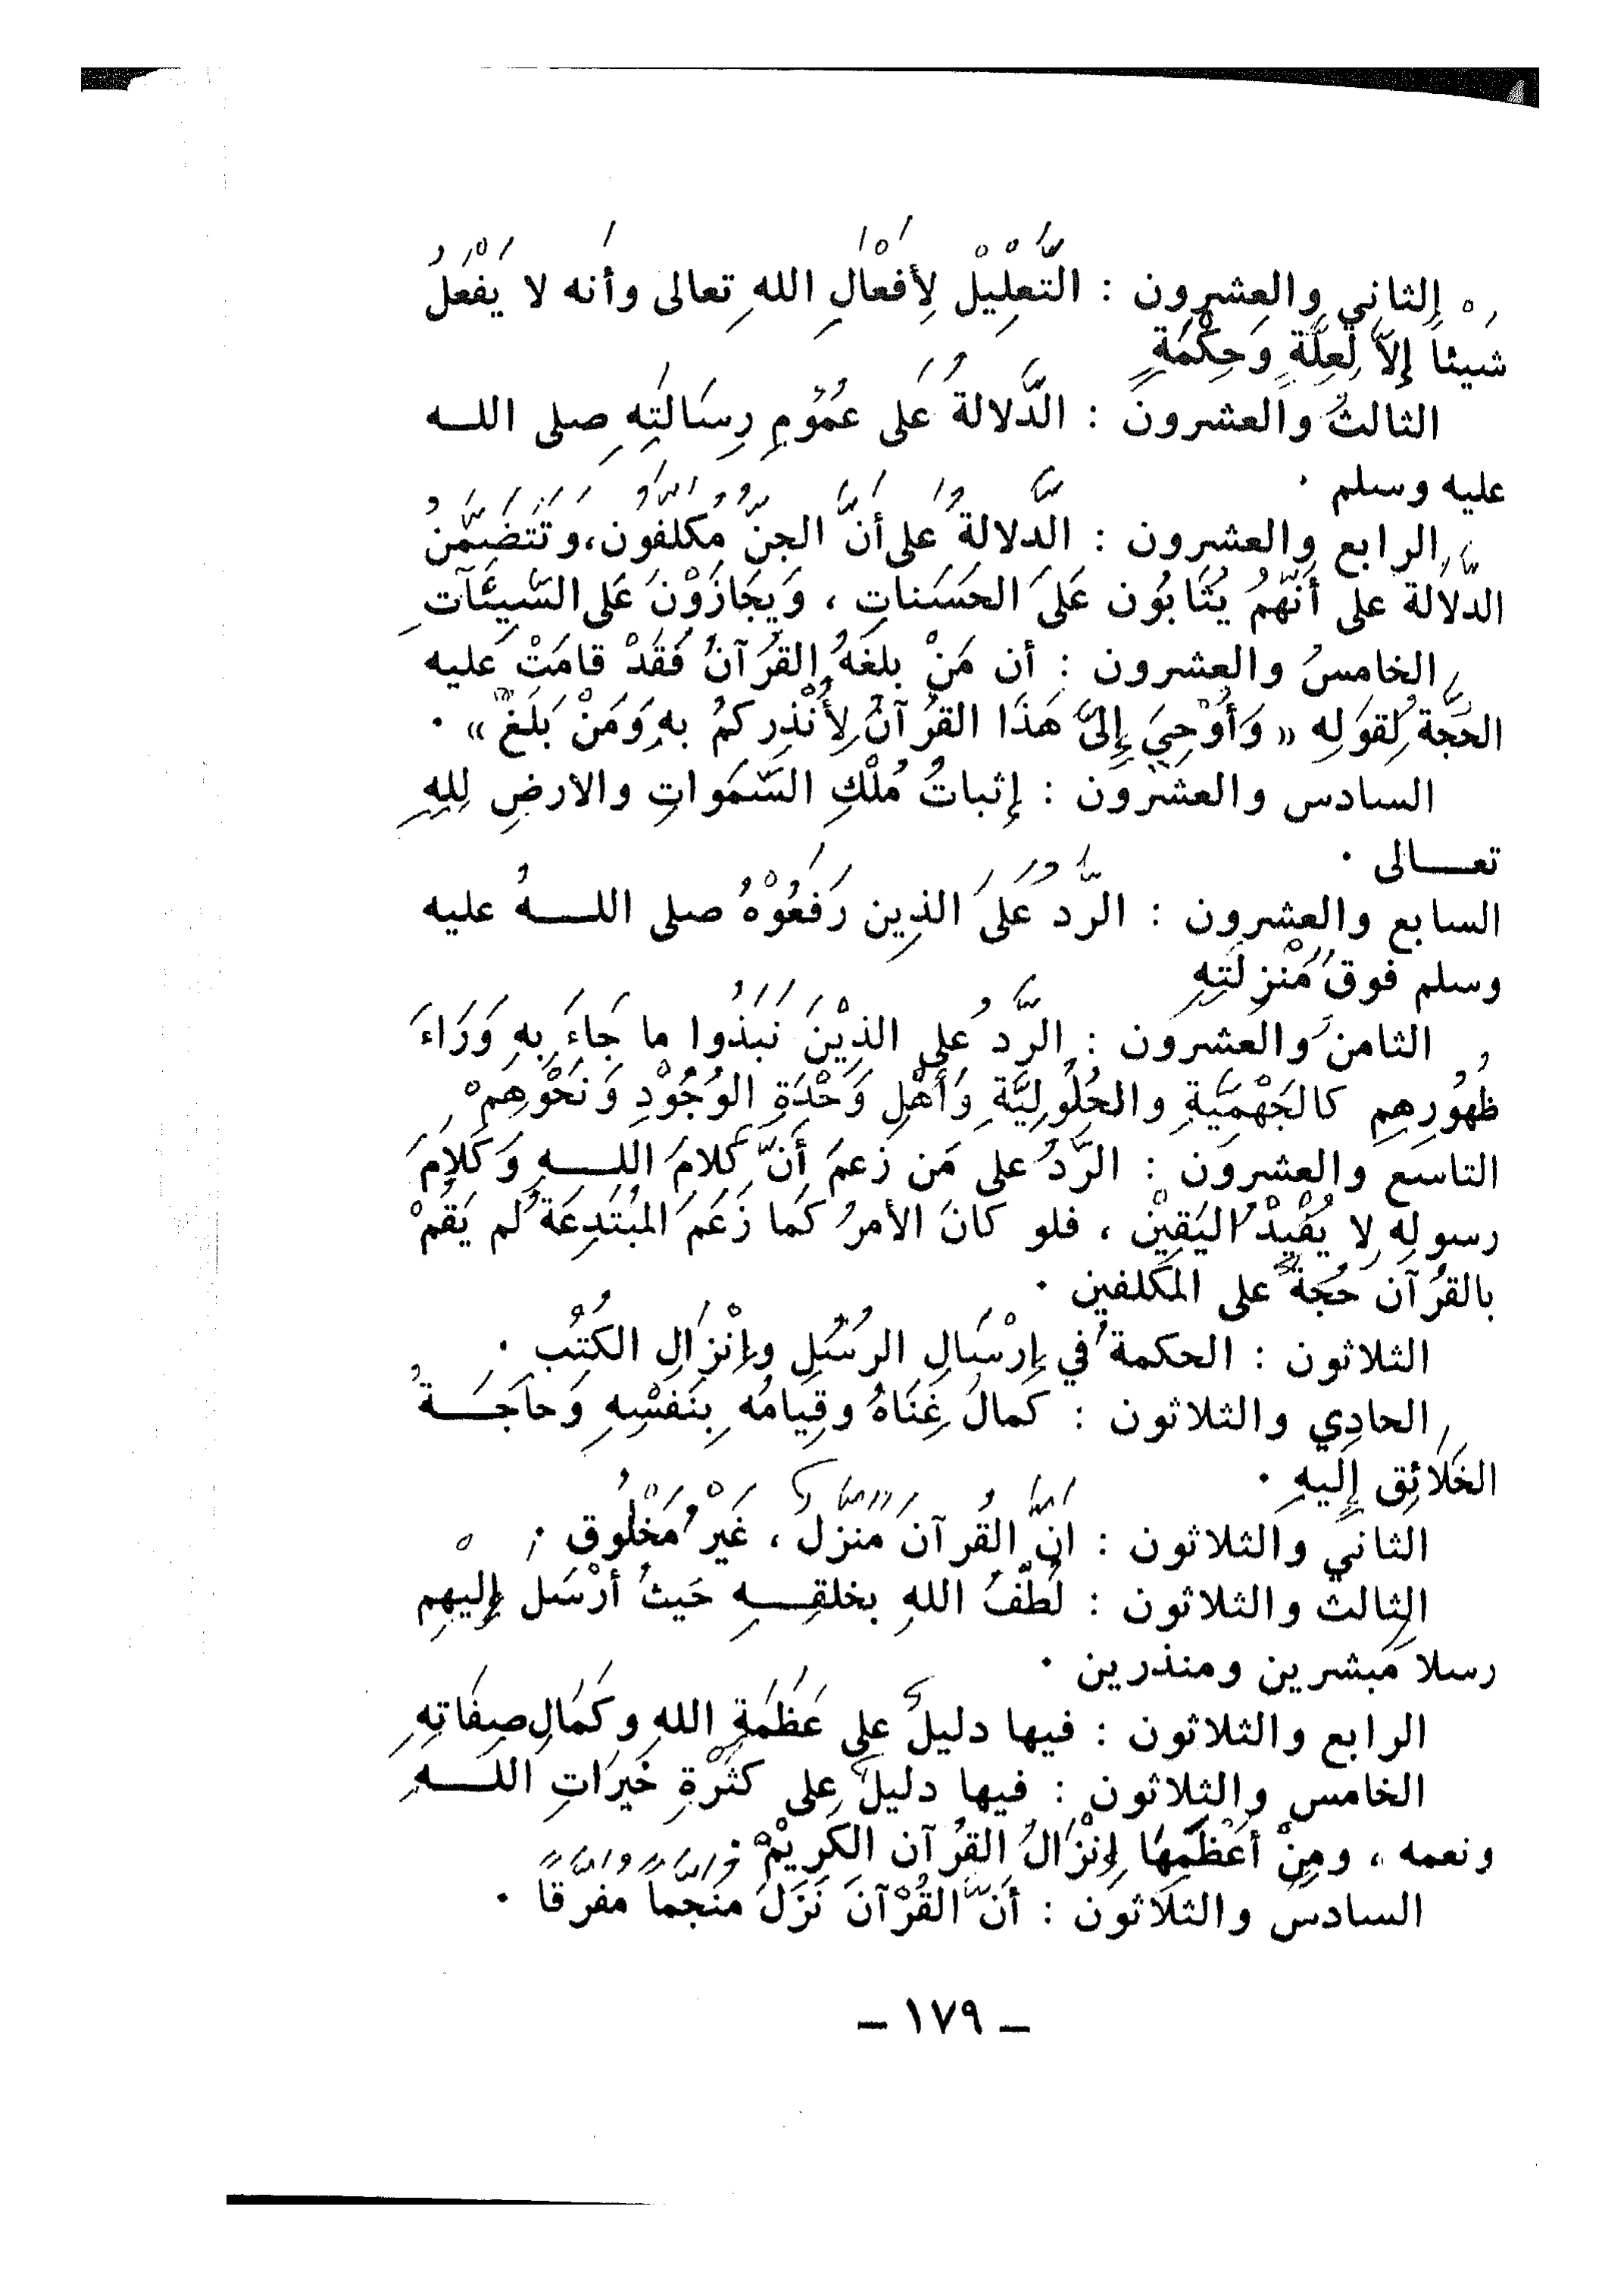 الثاني والعشرون : التَّعْلِيْلْ لِأَفْعَالِ اللهِ تعالى وأَنه لا يَفْعَلُ
شَيْئاً إِلاَّ لِعِلَّةٍ وَحِكْمَةٍ
الثالثُ والعشرون : الدَّلالةُ عَلى عُمُوْمِ رِسَالَتِهِ صلى اللــه
عليه وسلم .
الرابع والعشرون : الدَّلالةُ على أَنَّ الجِنَّ مُكَلَّفُون، وتَتَضَمَّنُ
الدَّلالَةَ على أَنَّهُمْ يُثَابُون عَلَى الحَسَنَاتِ ، وَيُجَازَوْنَ عَلى السَّيِئَآتِ
الخامسُ والعشرون : أن مَنْ بلغَهُ القُرْآنُ فَقَدْ قامَتْ عَليه
الحُجَّة لِقَولِه « وَأُوْحِيَ إِلَىَّ هَذَا القُرْآنُ لِأُنْذِرَكمُ بهِ وَمَنْ بَلَغَ » .
السادس والعشرون : إِثباتُ مُلْكِ السَّمَواتِ والارضِ لِلهِ
تعــالى .
السابع والعشرون : الرَّدُّ عَلَى الذِين رَفَعُوْهُ صلى اللــهُ عليه
وسلم فوقَ مَنْزِلَتِهِ
الثامن والعشرون : الرَّدُّ على الذِيْنَ نَبَذُوا ما جَاءَ بِهِ وَرَاءَ
ظُهُورِهِمِ كالجَهْمِيَّةِ والحُلُولِيَّةِ وَأَهْلِ وَحْدَةِ الوُجُوْدِ وَنَحْوِهِمْ
التاسع والعشرون : الرَّدُّ على مَن زَعمَ أَنَّ كَلامَ اللــهِ وَكَلامَ
رسولِهِ لا يُفِيْدُ اليَقِيْنْ ، فلو كانَ الأمرُ كَما زَعَمَ المُبْتَدِعَةُ لم يَقُمْ
بالقُرْآن حُجَّةٌ على المكلفين .
الثلاثون : الحكمةُ في إِرْسَالِ الرُّسُلِ وإِنْزَالِ الكُتُب .
الحادِي والثلاثون : كَمالُ غِنَاهُ وقِيَامُه بِنَفْسِهِ وَحاَجَــةُ
الخَلَائِق إِلَيهِ .
الثاني والثلاثون : انَّ القُرآنَ مُنَزَّلٌ ، غَيْرُ مَخْلُوق .
الثالث والثلاثون : لُطْفُ اللهِ بخلقِــهِ حَيثُ أَرْسَلَ إِليهِم
رسلا مُبشرين ومنذرين .
الرابع والثلاثون : فيها دليلٌ على عَظَمَةِ اللهِ وكَمَالِ صِفَاتِهِ
الخامس والثلاثون : فيها دليلٌ على كَثْرَةِ خَيرَاتِ اللــهِ
ونعمه ، ومِنْ أَعْظَمِهَا إِنْزَالُ القُرْآن الكَرِيْمْ .
السادس والثلاثون : أَنَّ القُرْآنَ نَزَلَ مُنَجَّماً مُفَرَّقاً .
– ١٧٩ –